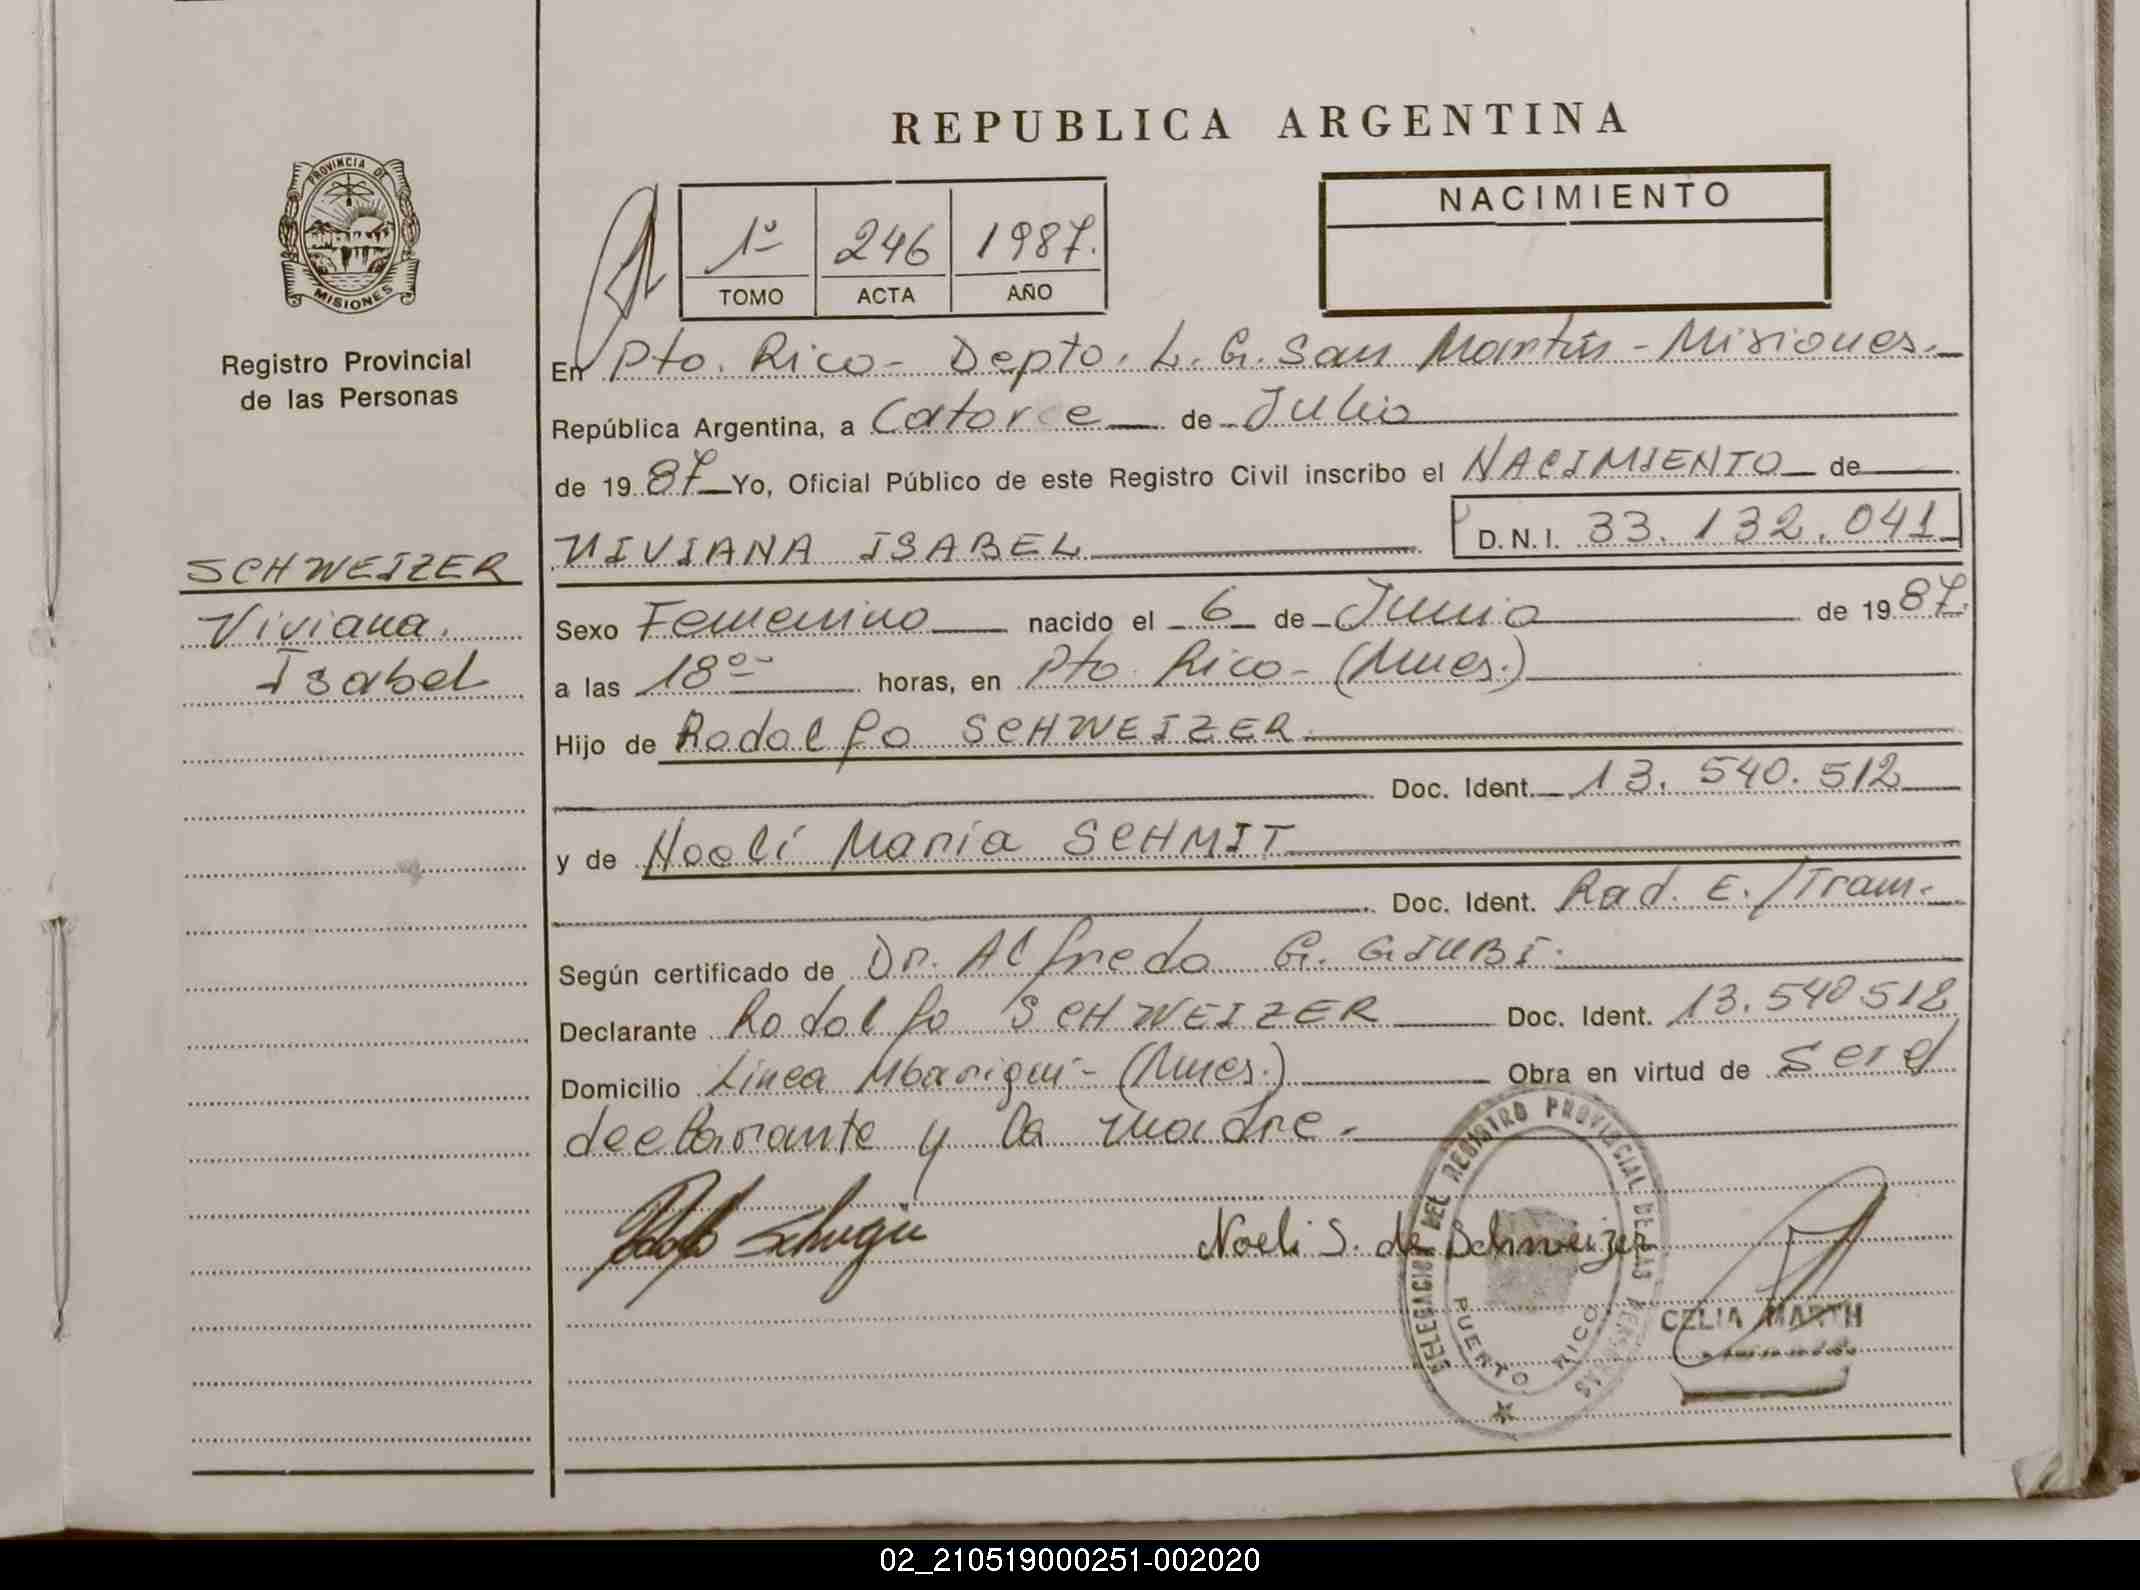 REPUBLICA ARGENTINA
PROVINCIA DE
MISIONES
Registro Provincial
de las Personas
1º 246 1987.
TOMO ACTA AÑO
NACIMIENTO
En Pto. Rico - Depto. L. G. San Martín - Misiones.
República Argentina, a Catorce de Julio
de 1987 Yo, Oficial Público de este Registro Civil inscribo el NACIMIENTO de
VIVIANA ISABEL D.N.I. 33.132.041
SCHWEIZER
Viviana
Isabel
Sexo Femenino nacido el 6 de Junio de 1987.
a las 18º- horas, en Pto. Rico - (Mnes.)
Hijo de Rodolfo SCHWEIZER
Doc. Ident. 13.540.512
y de Noelí María SCHMIT
Doc. Ident. Rad. E./Tram.
Según certificado de Dr. Alfredo G. GIUBI.
Declarante Rodolfo SCHWEIZER Doc. Ident. 13.540512
Domicilio Línea Mbarigui - (Mnes.) Obra en virtud de ser el
declarante y la madre.
Noeli S. de Schweizer
DELEGACION DEL REGISTRO PROVINCIAL DE LAS PERSONAS
PUERTO RICO
CELIA MARTH
02_210519000251-002020